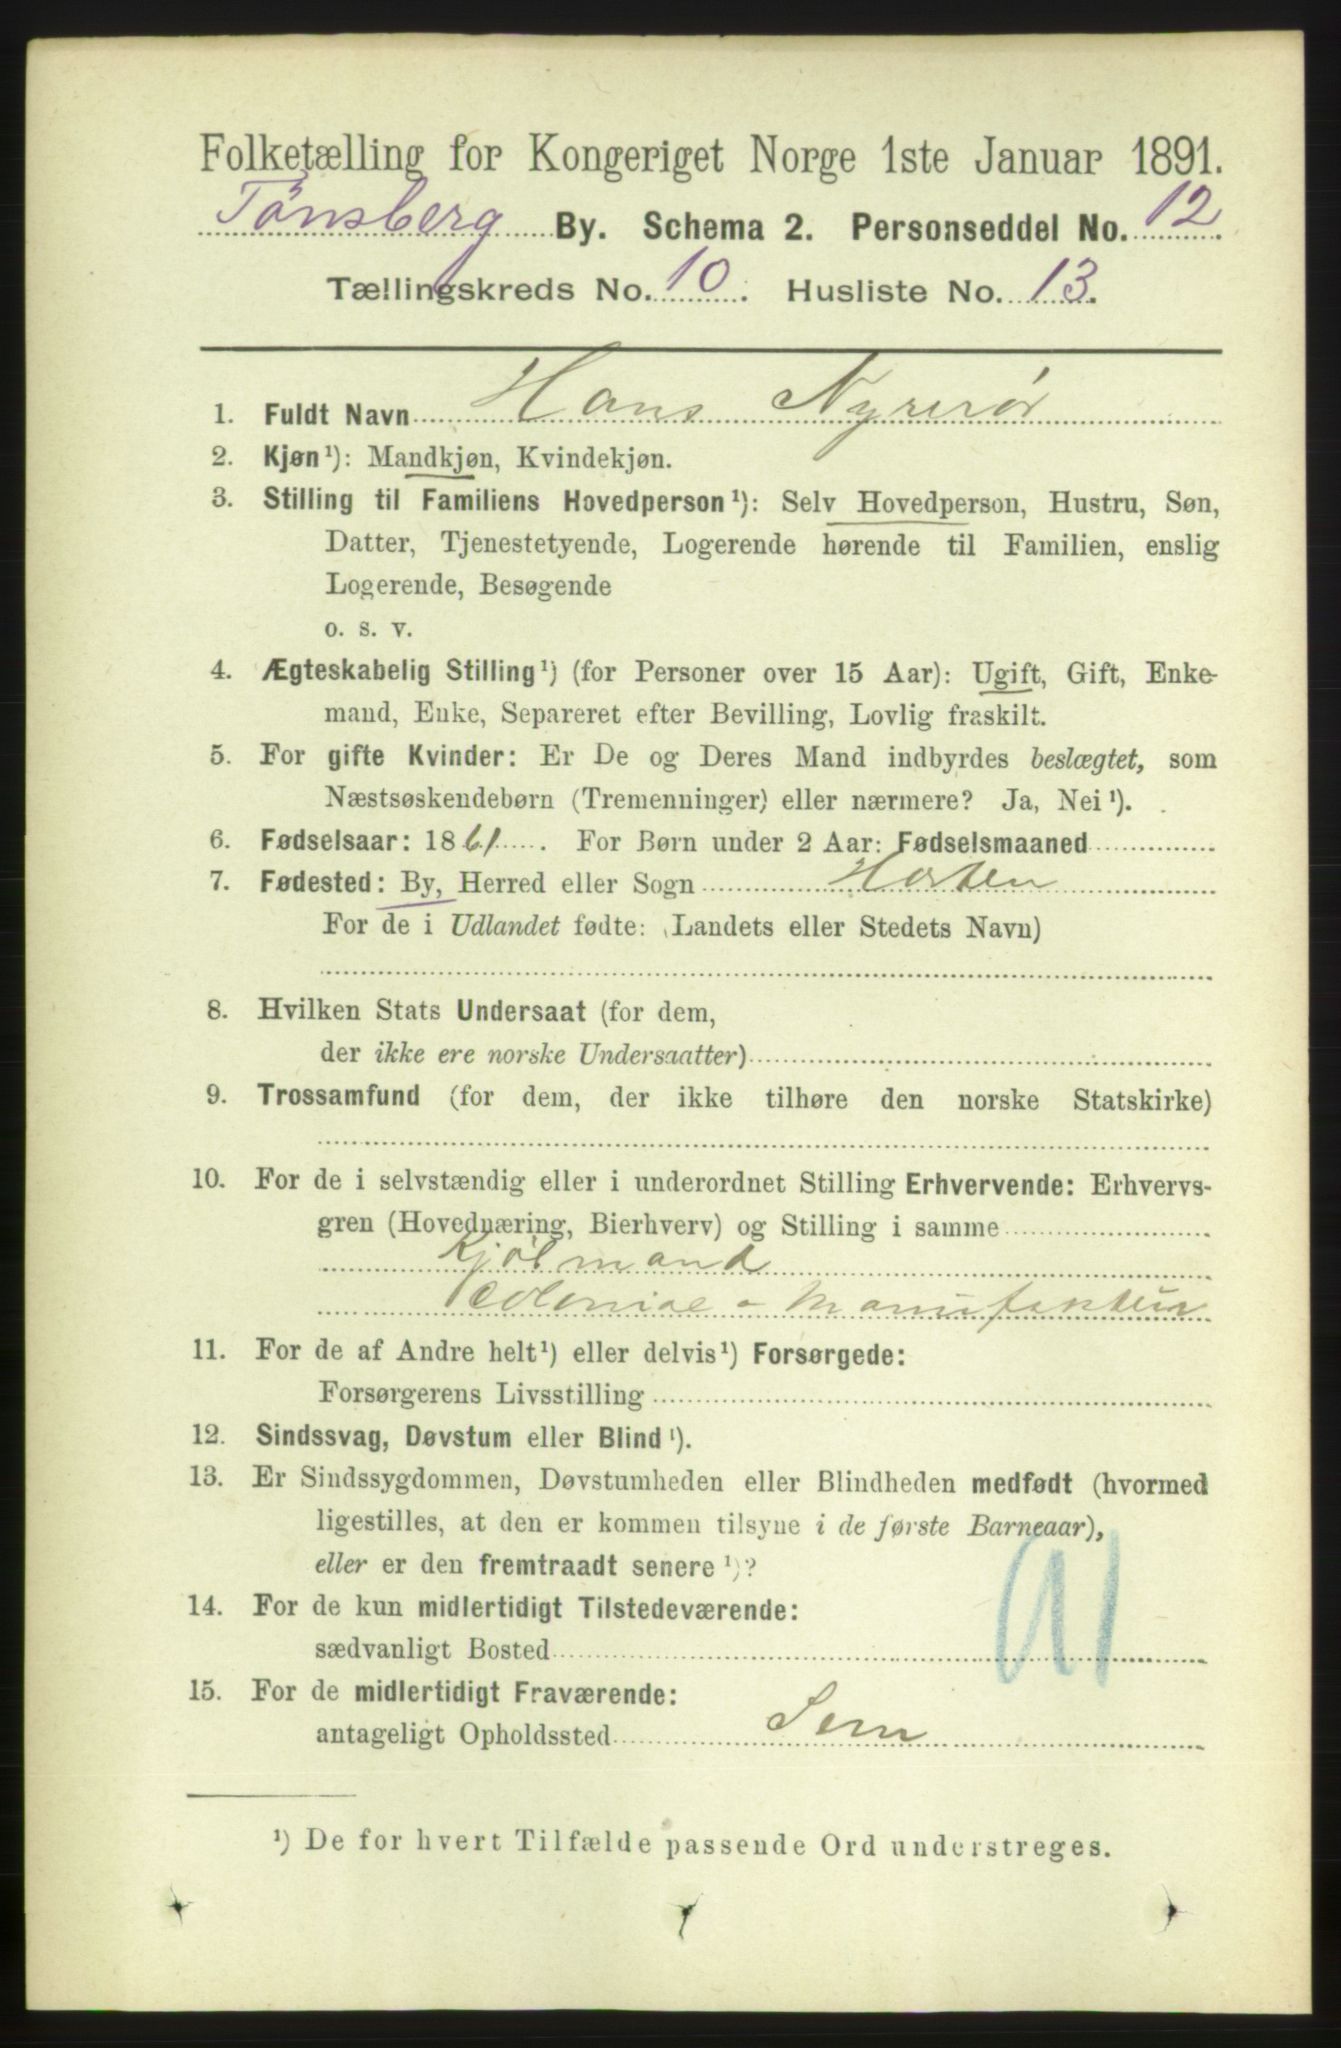 Folketælling for Kongeriget Norge 1ste Januar 1891.
Tönsberg By. Schema 2. Personseddel No. 12
Tællingskreds No. 10. Husliste No. 13.
1. Fuldt Navn Hans Nyrerör
2. Kjøn¹): Mandkjøn, Kvindekjøn.
3. Stilling til Familiens Hovedperson¹): Selv Hovedperson, Hustru, Søn,
Datter, Tjenestetyende, Logerende hørende til Familien, enslig
Logerende, Besøgende
o. s. v.
4. Ægteskabelig Stilling¹) (for Personer over 15 Aar): Ugift, Gift, Enke-
mand, Enke, Separeret efter Bevilling, Lovlig fraskilt.
5. For gifte Kvinder: Er De og Deres Mand indbyrdes beslægtet, som
Næstsøskendebørn (Tremenninger) eller nærmere? Ja, Nei¹).
6. Fødselsaar: 1861. For Børn under 2 Aar: Fødselsmaaned
7. Fødested: By, Herred eller Sogn Horten
For de i Udlandet fødte: (Landets eller Stedets Navn)
8. Hvilken Stats Undersaat (for dem,
der ikke ere norske Undersaatter)
9. Trossamfund (for dem, der ikke tilhøre den norske Statskirke)
10. For de i selvstændig eller i underordnet Stilling Erhvervende: Erhvervs-
gren (Hovednæring, Bierhverv) og Stilling i samme
Kjöbmand
Colonial - Manufaktur
11. For de af Andre helt¹) eller delvis¹) Forsørgede:
Forsørgerens Livsstilling
12. Sindssvag, Døvstum eller Blind¹).
13. Er Sindssygdommen, Døvstumheden eller Blindheden medfødt (hvormed
ligestilles, at den er kommen tilsyne i de første Barneaar),
eller er den fremtraadt senere¹)?
14. For de kun midlertidigt Tilstedeværende:
sædvanligt Bosted
15. For de midlertidigt Fraværende:
antageligt Opholdssted Sem
¹) De for hvert Tilfælde passende Ord understreges.